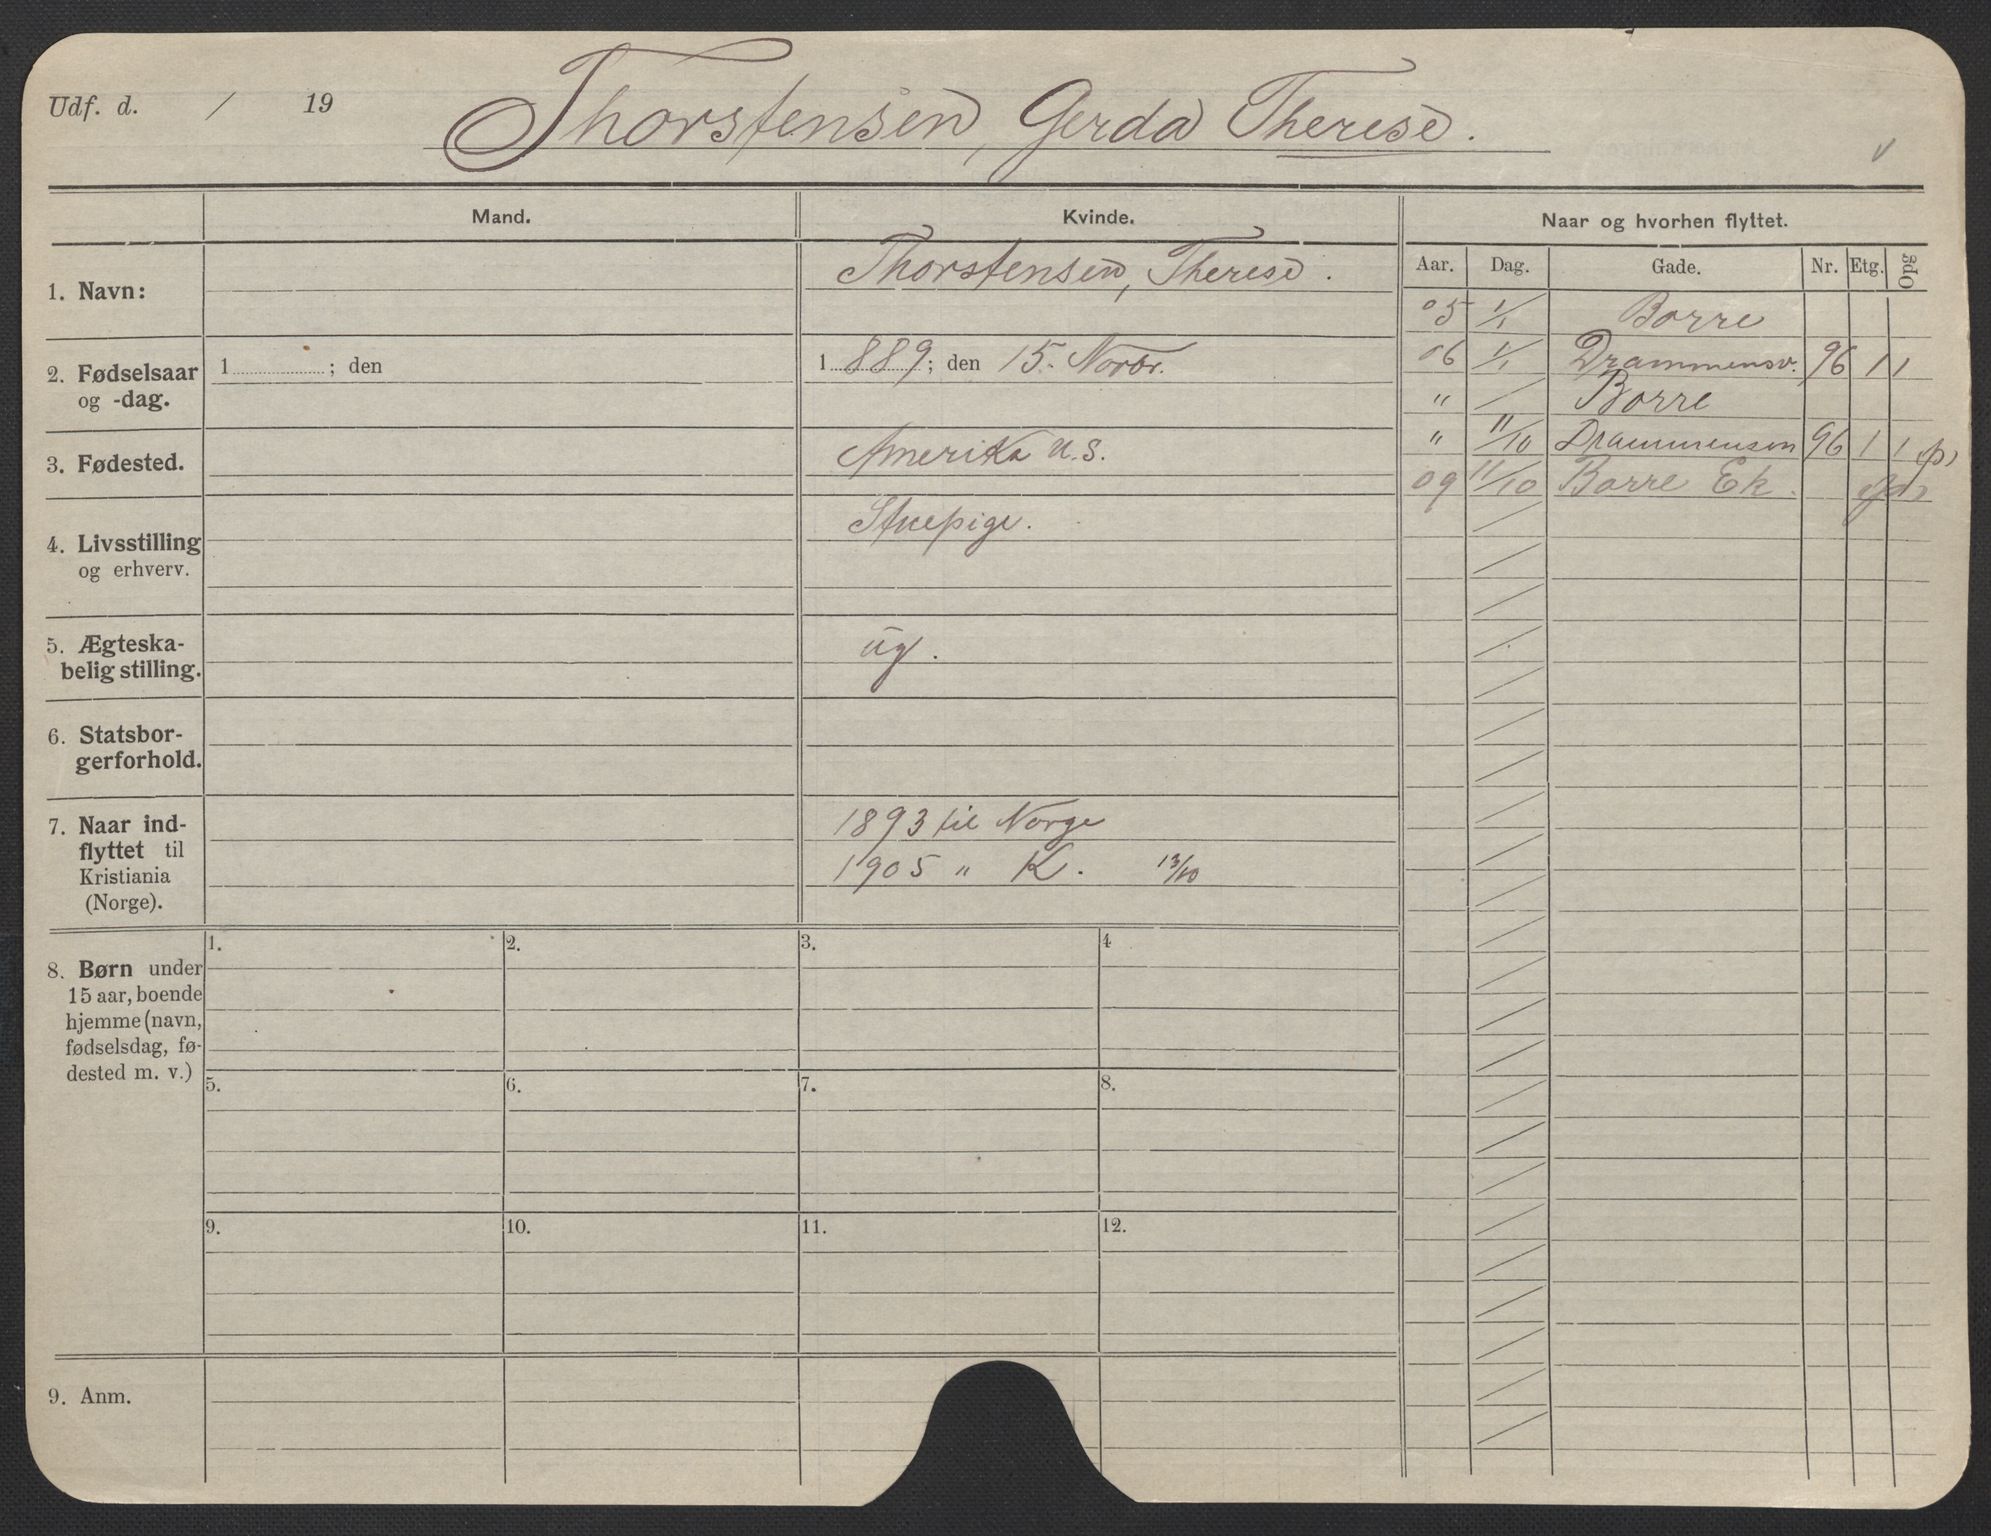 Udf. d. / 19
Thorstensen, Gerda Therese.
Mand.
Kvinde.
Naar og hvorhen flyttet.
Aar. Dag. Gade. Nr. Etg. Opg
1. Navn:
Thorstensen, Therese.
2. Fødselsaar
og -dag.
1 ; den
1 889 ; den 15. Novbr.
3. Fødested.
Amerika U.S.
4. Livsstilling
og erhverv.
Stuepige.
5. Ægteska-
belig stilling.
ug.
6. Statsbor-
gerforhold.
7. Naar ind-
flyttet til
Kristiania
(Norge).
1893 til Norge
1905 " K. 13/10
05 1/1 Borre
06 1/1 Drammensv. 96 1 1
" / Borre
" 11/10 Drammensvn 96 1 1
09 11/10 Borre Ek.
8. Børn under
15 aar, boende
hjemme (navn,
fødselsdag, fø-
dested m. v.)
1. 2. 3. 4
5. 6. 7. 8.
9. 10. 11. 12.
9. Anm.